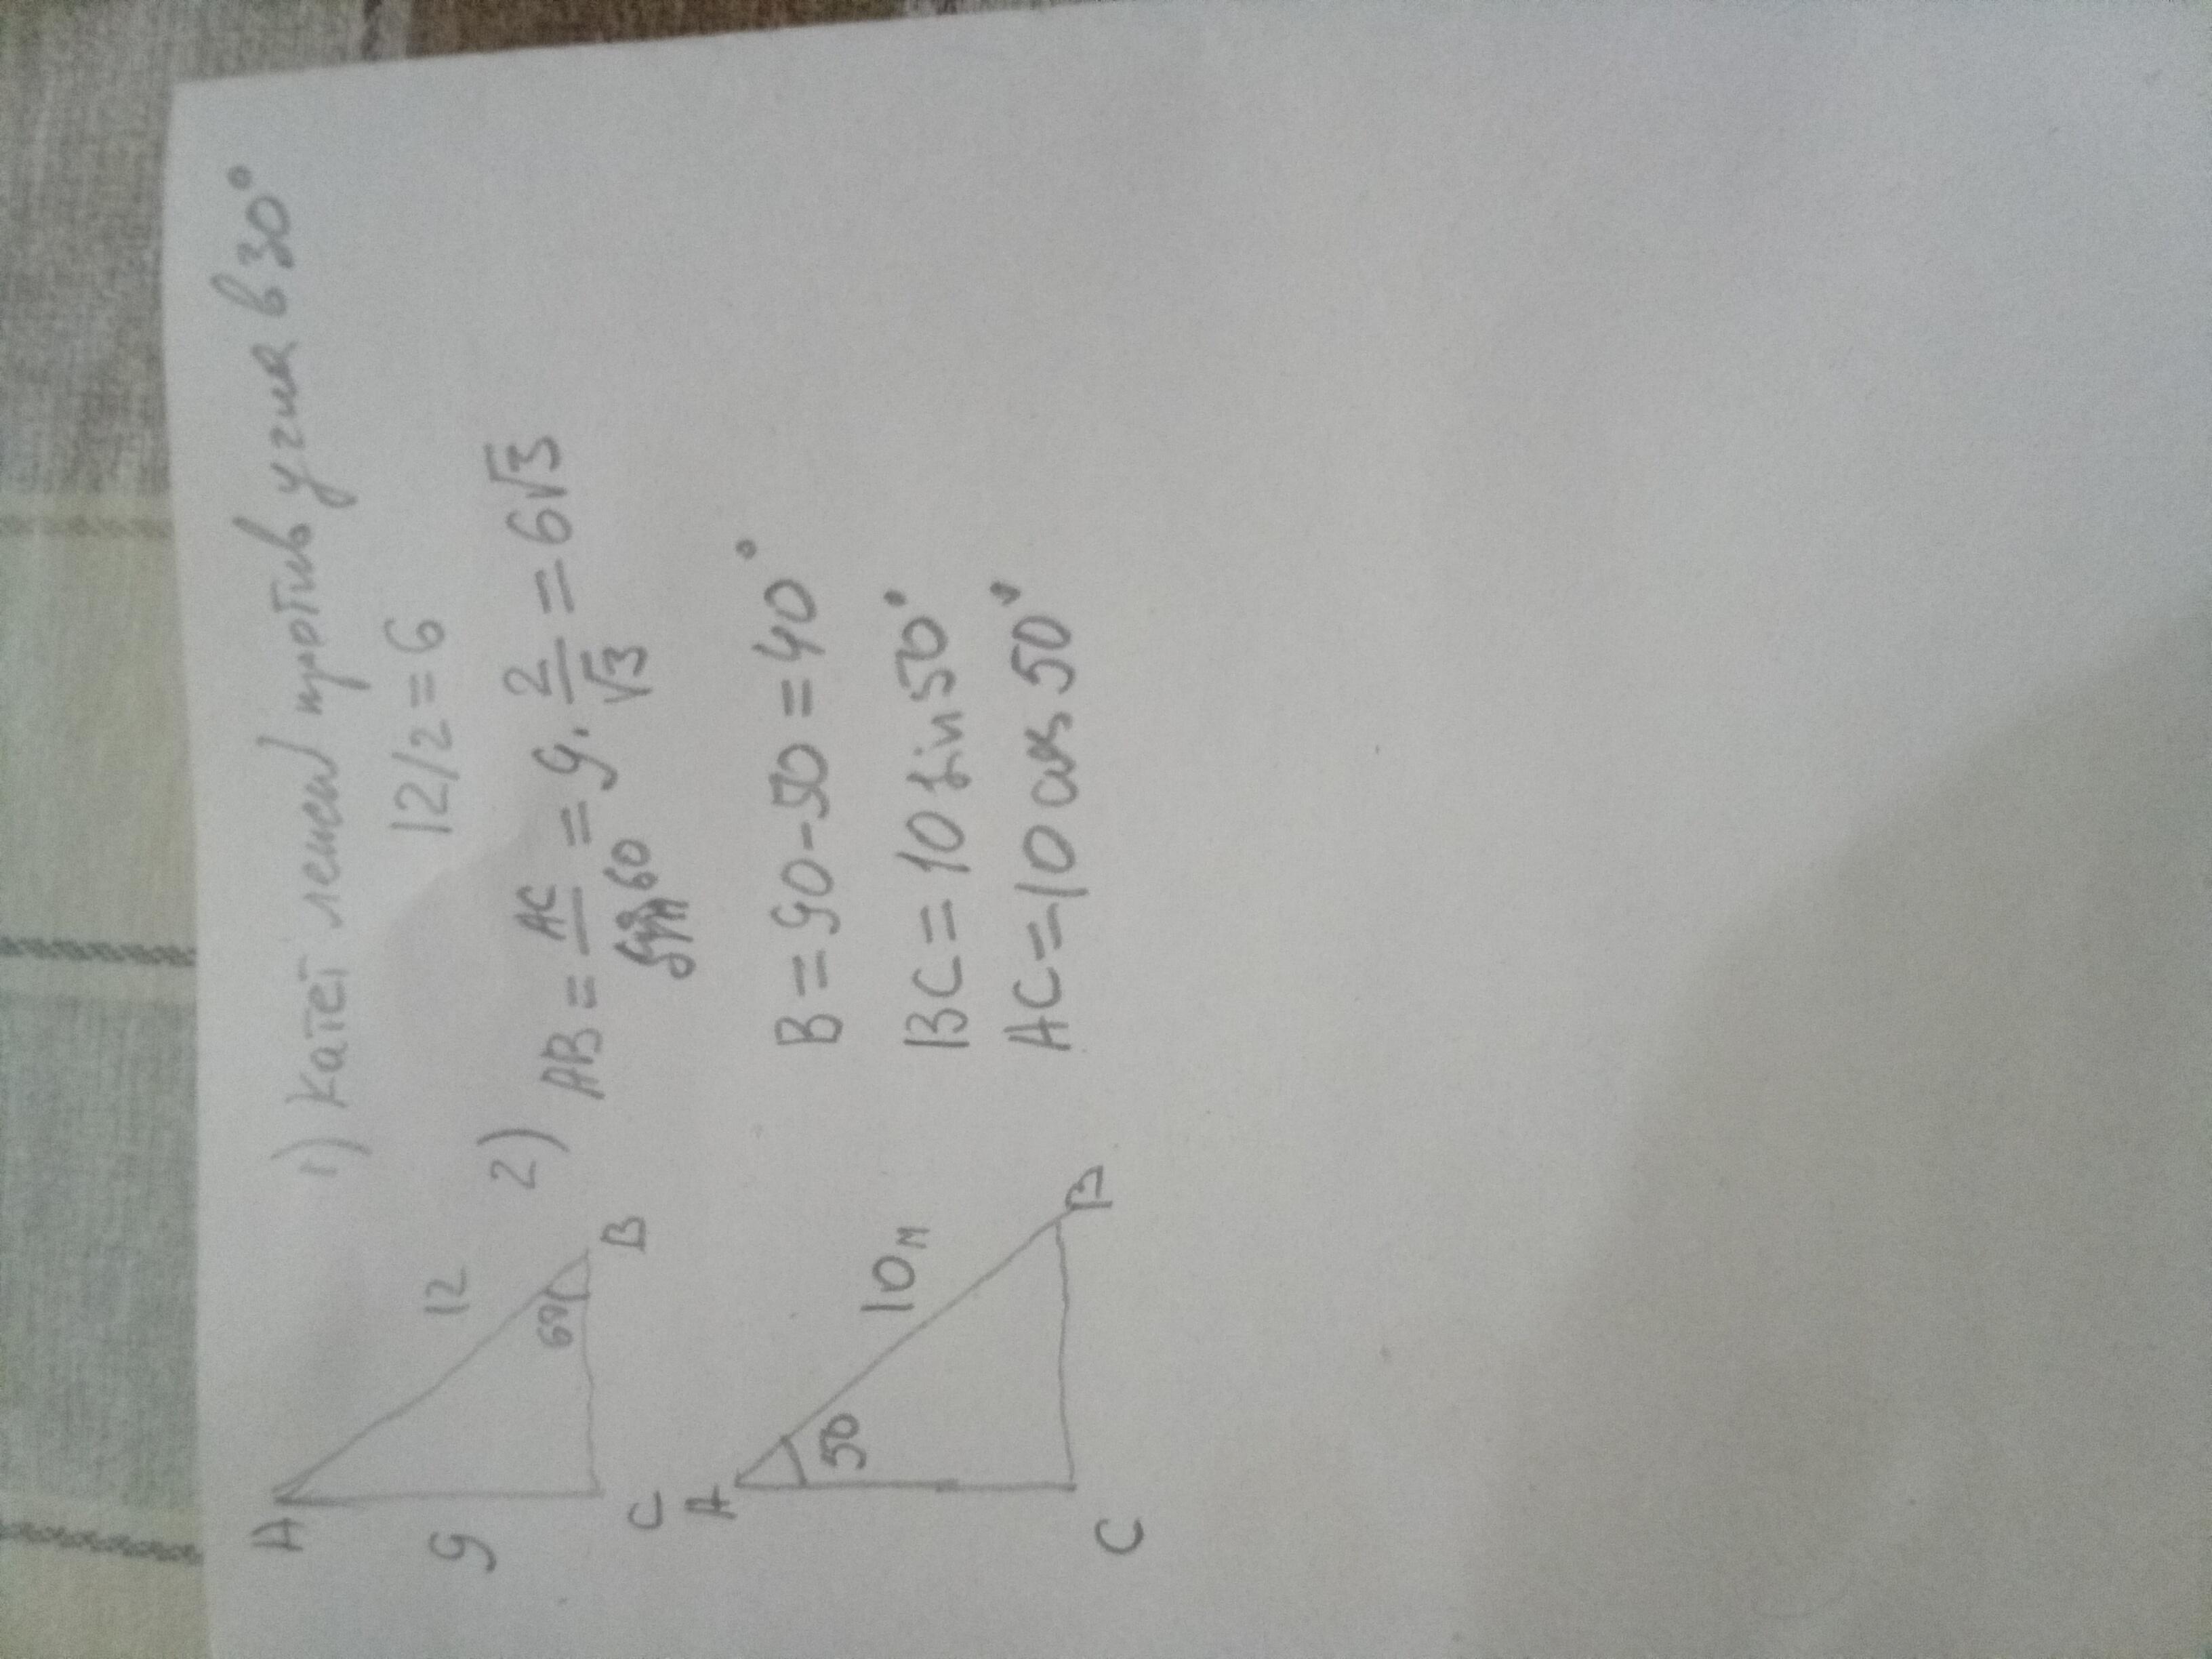 1) Катет лежит против угла в 30°
12/2 = 6
A
12
9
60
C
B
2) AB = AC/sin 60 = 9 · 2/√3 = 6√3
A
50
10м
C
B
B = 90 - 50 = 40°
BC = 10 sin 50°
AC = 10 cos 50°